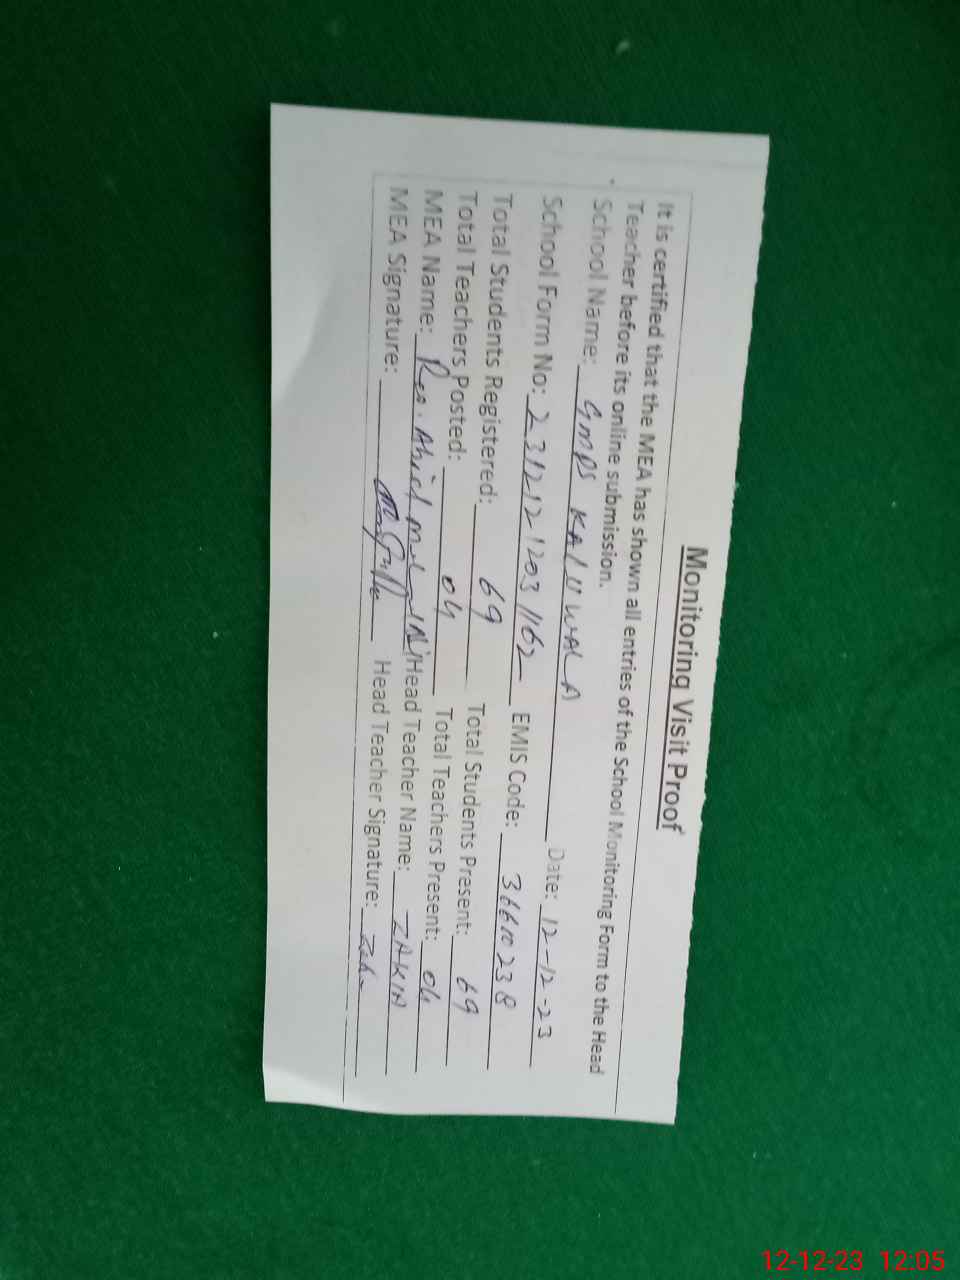 Monitoring Visit Proof
It is certified that the MEA has shown all entries of the School Monitoring Form to the Head
Teacher before its online submission.
School Name: GMPS KALUWALA Date: 12-12-23
School Form No: 2312121203 1162 EMIS Code: 36610238
Total Students Registered: 69 Total Students Present: 69
Total Teachers Posted: 04 Total Teachers Present: 04
MEA Name: Head Teacher Name: ZAKIA
MEA Signature: Head Teacher Signature:
12-12-23 12:05